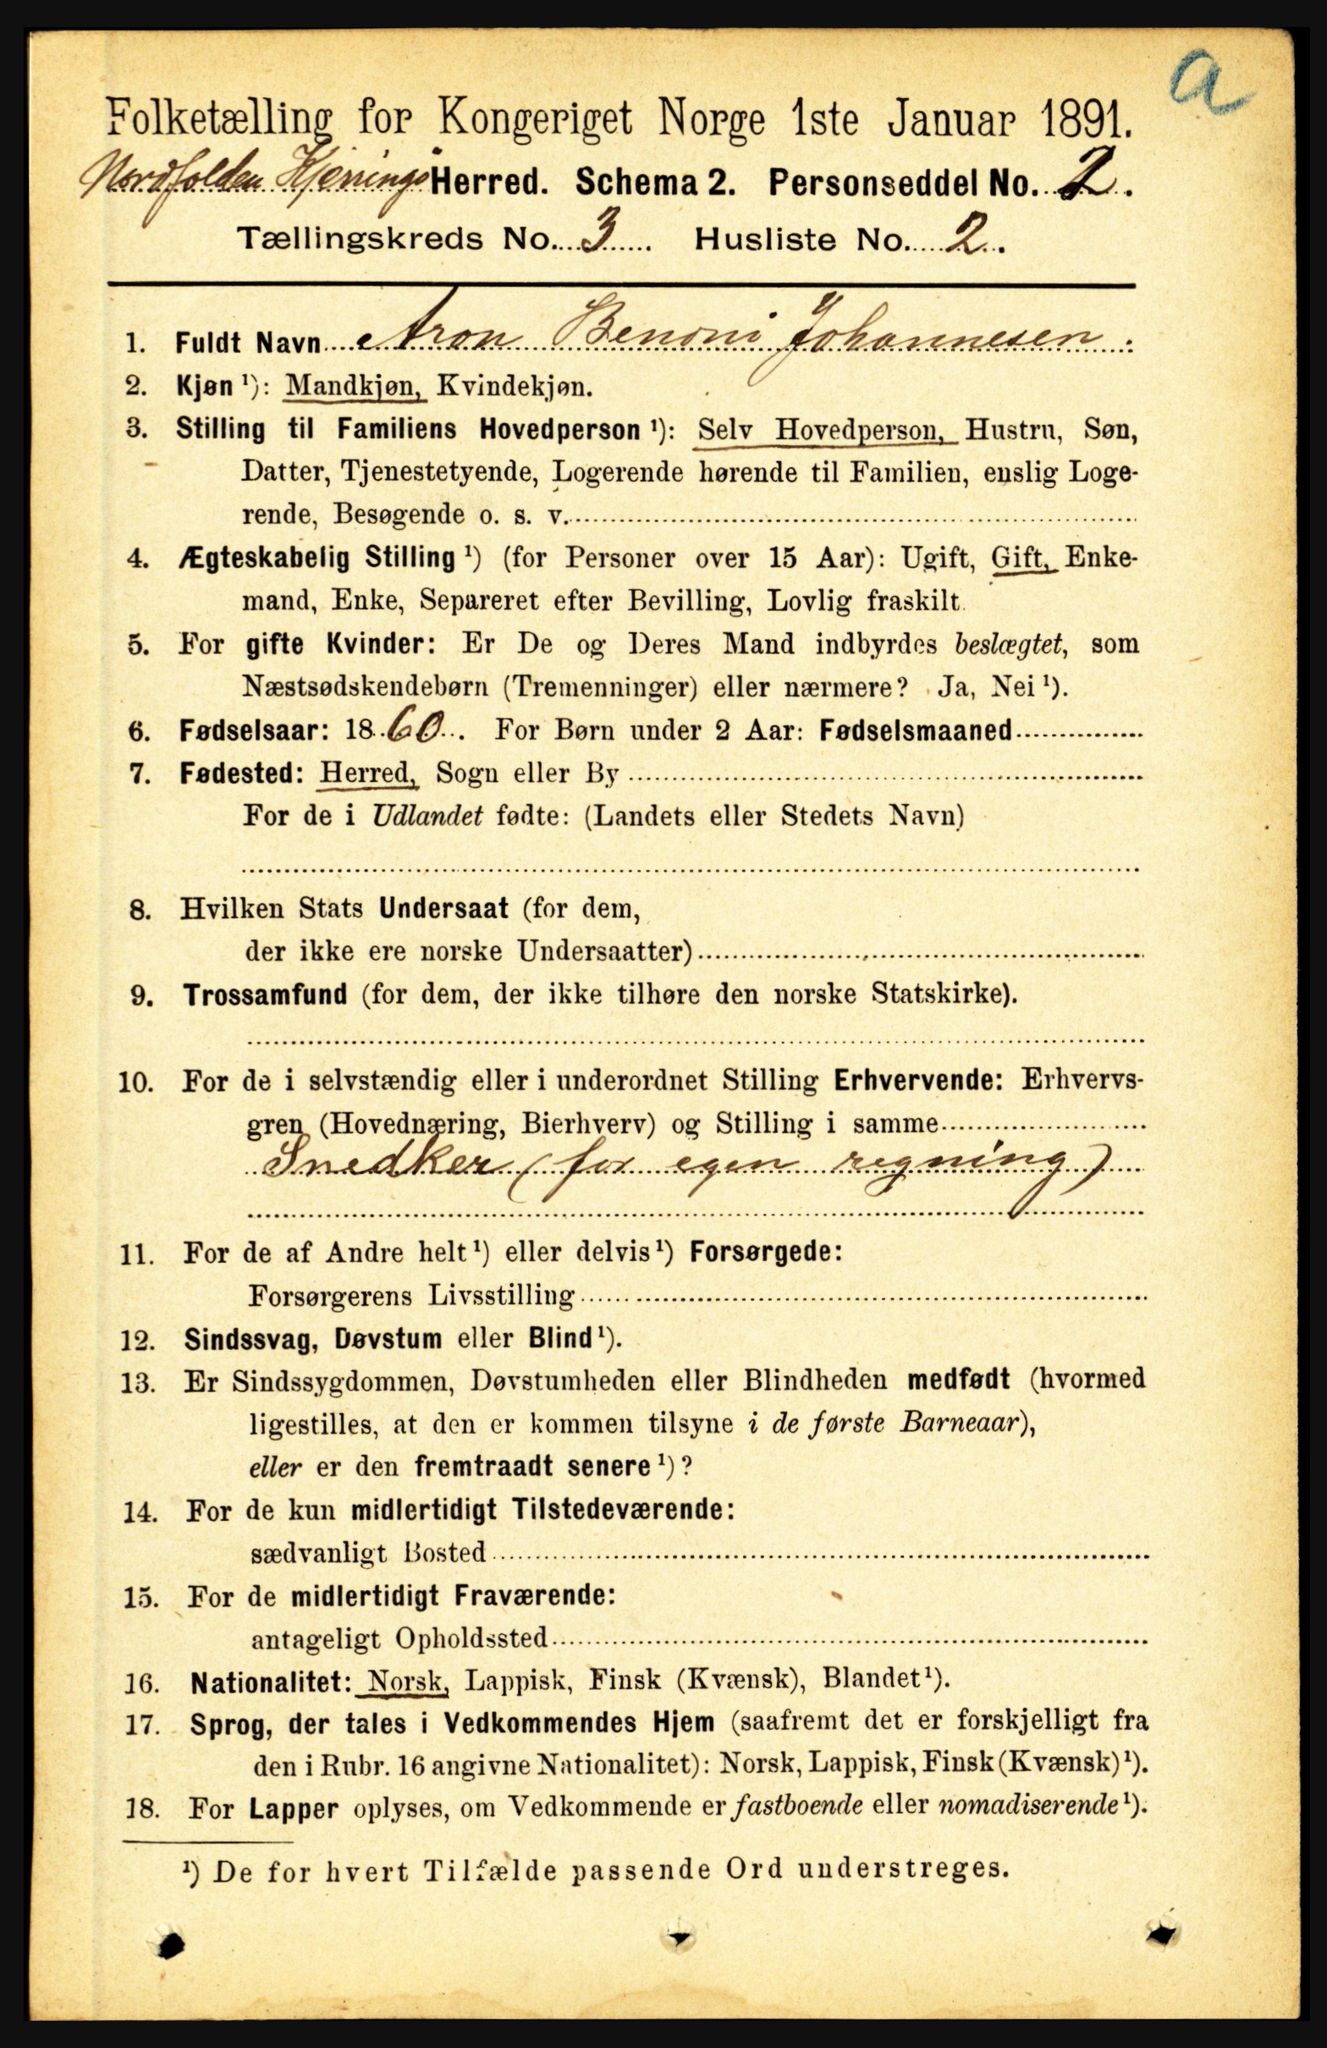 a
Folketælling for Kongeriget Norge 1ste Januar 1891.
Nordfolden Kjerringø Herred. Schema 2. Personseddel No. 2.
Tællingskreds No. 3 Husliste No. 2.
1. Fuldt Navn Aron Benoni Johannesen
2. Kjøn ¹): Mandkjøn, Kvindekjøn.
3. Stilling til Familiens Hovedperson ¹): Selv Hovedperson, Hustru, Søn,
Datter, Tjenestetyende, Logerende hørende til Familien, enslig Loge-
rende, Besøgende o. s. v.
4. Ægteskabelig Stilling ¹) (for Personer over 15 Aar): Ugift, Gift, Enke-
mand, Enke, Separeret efter Bevilling, Lovlig fraskilt.
5. For gifte Kvinder: Er De og Deres Mand indbyrdes beslægtet, som
Næstsødskendebørn (Tremenninger) eller nærmere? Ja, Nei ¹).
6. Fødselsaar: 1860. For Børn under 2 Aar: Fødselsmaaned
7. Fødested: Herred, Sogn eller By
For de i Udlandet fødte: (Landets eller Stedets Navn)
8. Hvilken Stats Undersaat (for dem,
der ikke ere norske Undersaatter)
9. Trossamfund (for dem, der ikke tilhøre den norske Statskirke).
10. For de i selvstændig eller i underordnet Stilling Erhvervende: Erhvervs-
gren (Hovednæring, Bierhverv) og Stilling i samme
Snedker (for egen regning)
11. For de af Andre helt ¹) eller delvis ¹) Forsørgede:
Forsørgerens Livsstilling
12. Sindssvag, Døvstum eller Blind ¹).
13. Er Sindssygdommen, Døvstumheden eller Blindheden medfødt (hvormed
ligestilles, at den er kommen tilsyne i de første Barneaar),
eller er den fremtraadt senere ¹)?
14. For de kun midlertidigt Tilstedeværende:
sædvanligt Bosted
15. For de midlertidigt Fraværende:
antageligt Opholdssted
16. Nationalitet: Norsk, Lappisk, Finsk (Kvænsk), Blandet ¹).
17. Sprog, der tales i Vedkommendes Hjem (saafremt det er forskjelligt fra
den i Rubr. 16 angivne Nationalitet): Norsk, Lappisk, Finsk (Kvænsk) ¹).
18. For Lapper oplyses, om Vedkommende er fastboende eller nomadiserende ¹).
¹) De for hvert Tilfælde passende Ord understreges.